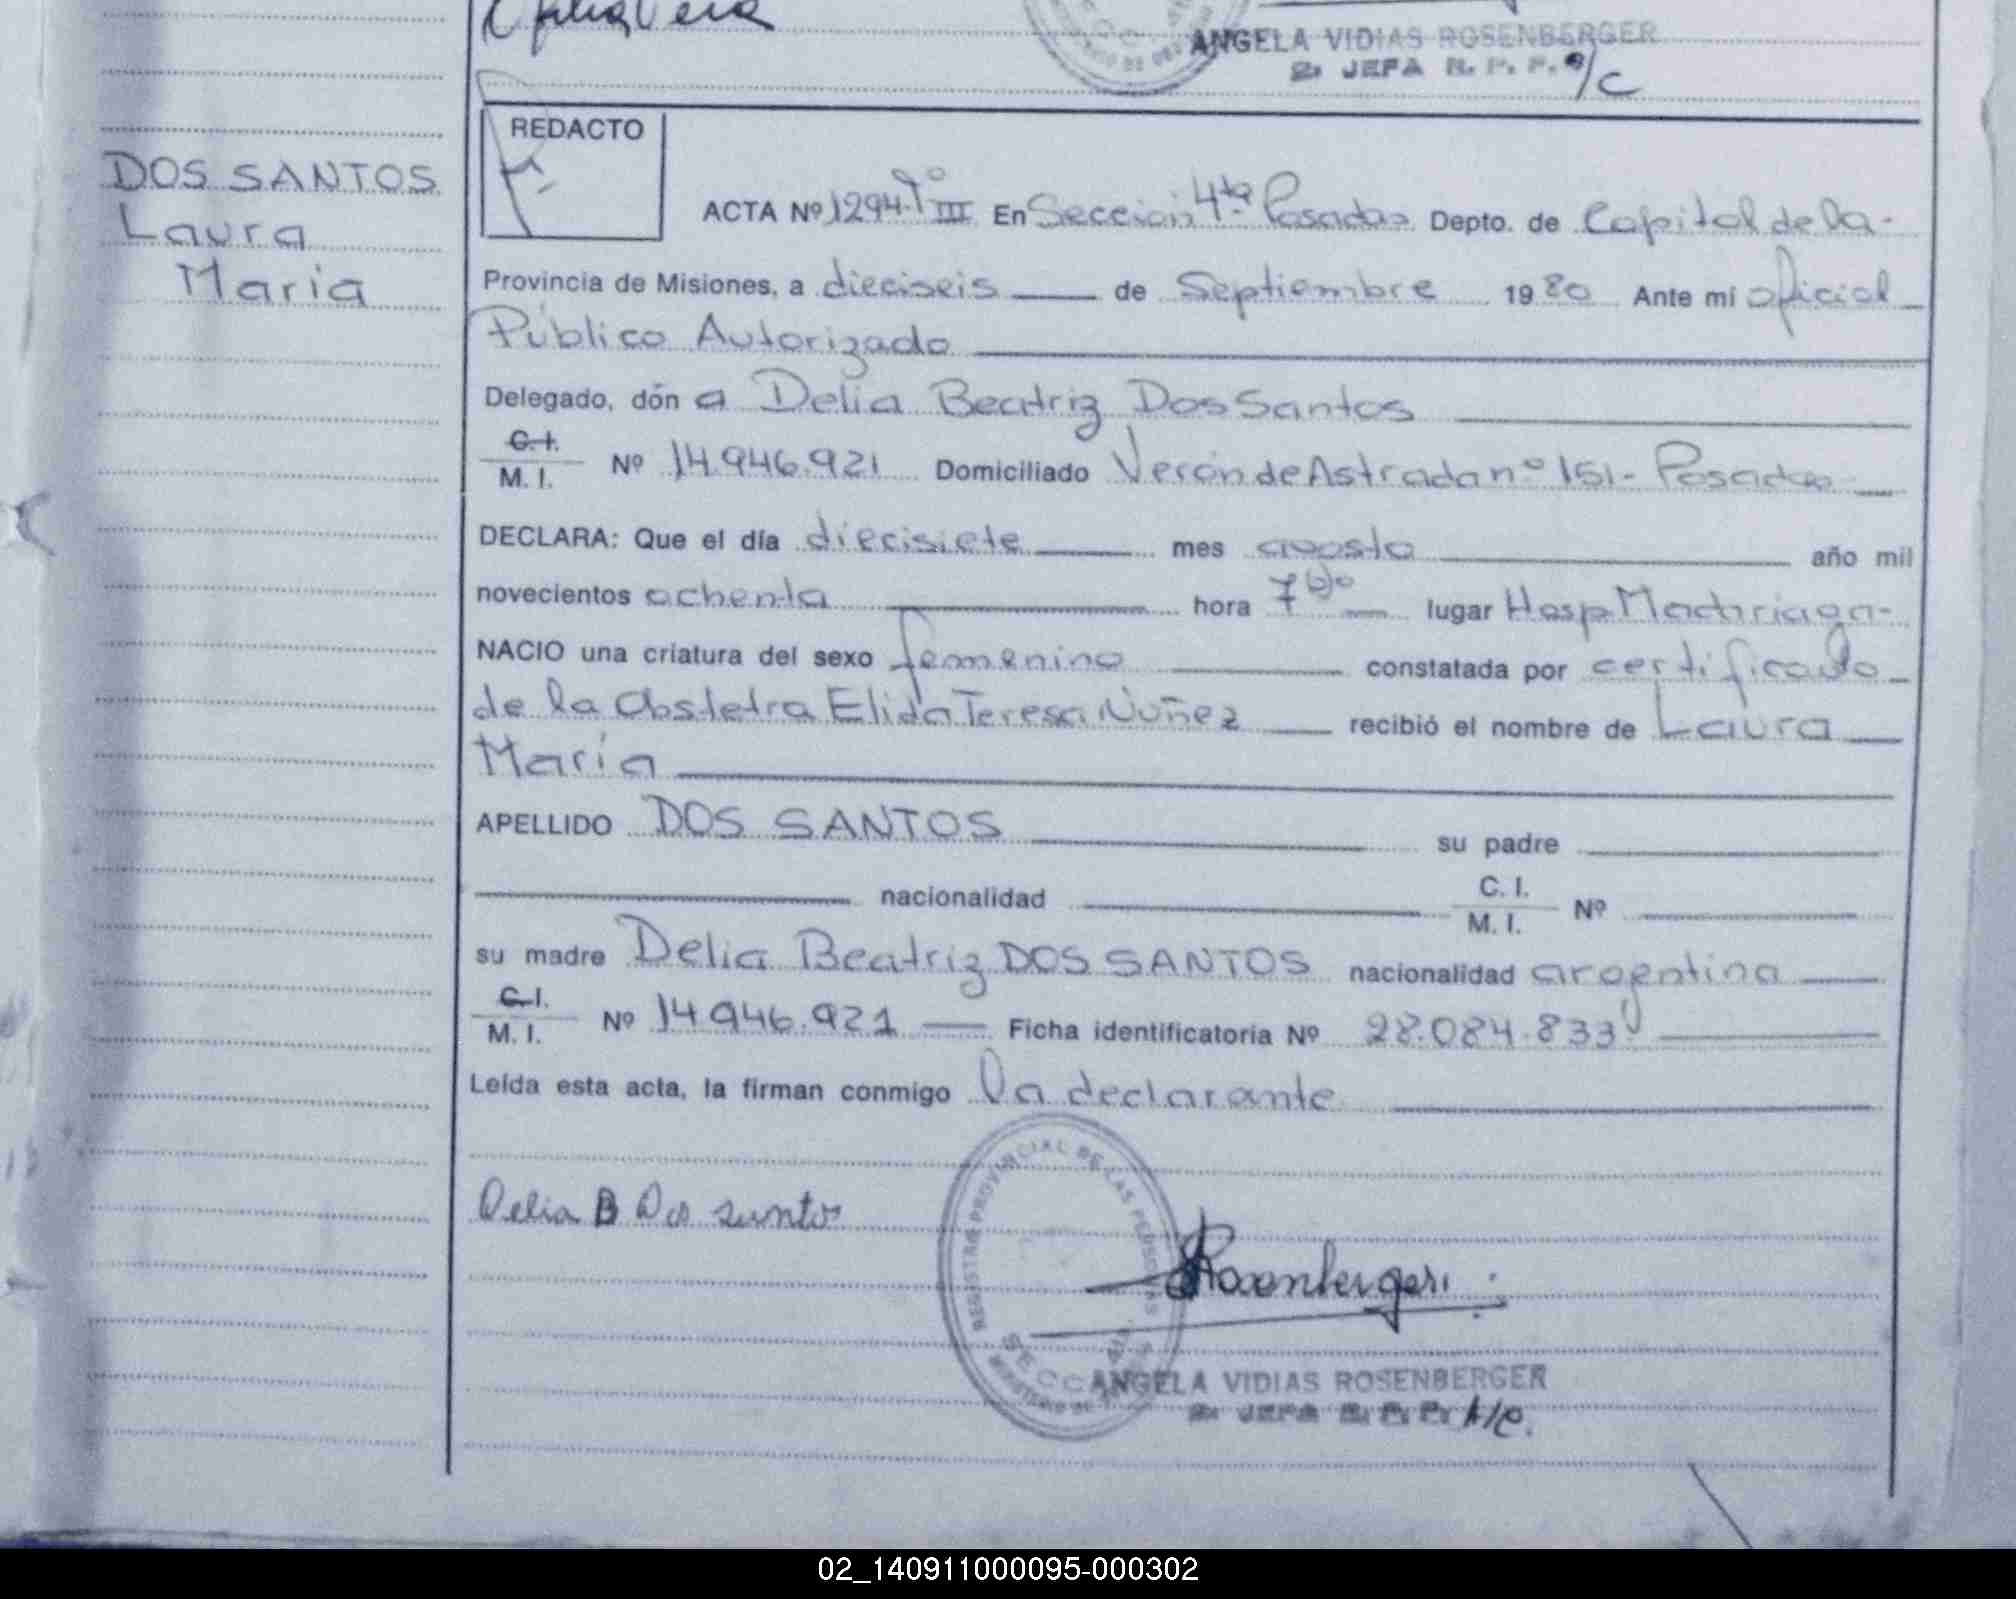 ANGELA VIDIAS ROSENBERGER
2ª JEFA R. P. P. a/c
REDACTO
DOS SANTOS
Laura
María
ACTA Nº 1294 Tº III En Sección 4ta Posadas Depto. de Capital de la-
Provincia de Misiones, a dieciseis de Septiembre 1980 Ante mi oficial
Público Autorizado
Delegado, dón a Delia Beatriz Dos Santos
C.I.
M. I. Nº 14.946.921 Domiciliado Verón de Astrada nº 151- Posadas
DECLARA: Que el día diecisiete mes agosto año mil
novecientos ochenta hora 7 00 lugar Hosp. Madriaga-
NACIO una criatura del sexo femenino constatada por certificado
de la Obstetra Elida Teresa Nuñez recibió el nombre de Laura
María
APELLIDO DOS SANTOS su padre
nacionalidad C. I.
M. I. Nº
su madre Delia Beatriz DOS SANTOS nacionalidad argentina
C.I.
M. I. Nº 14.946.921 Ficha identificatoria Nº 28.084.833
Leída esta acta, la firman conmigo la declarante
REGISTRO PROVINCIAL DE LAS PERSONAS
Delia B Dos santos
Rosenberger
ANGELA VIDIAS ROSENBERGER
2ª JEFA R. P. P. a/c.
02_140911000095-000302